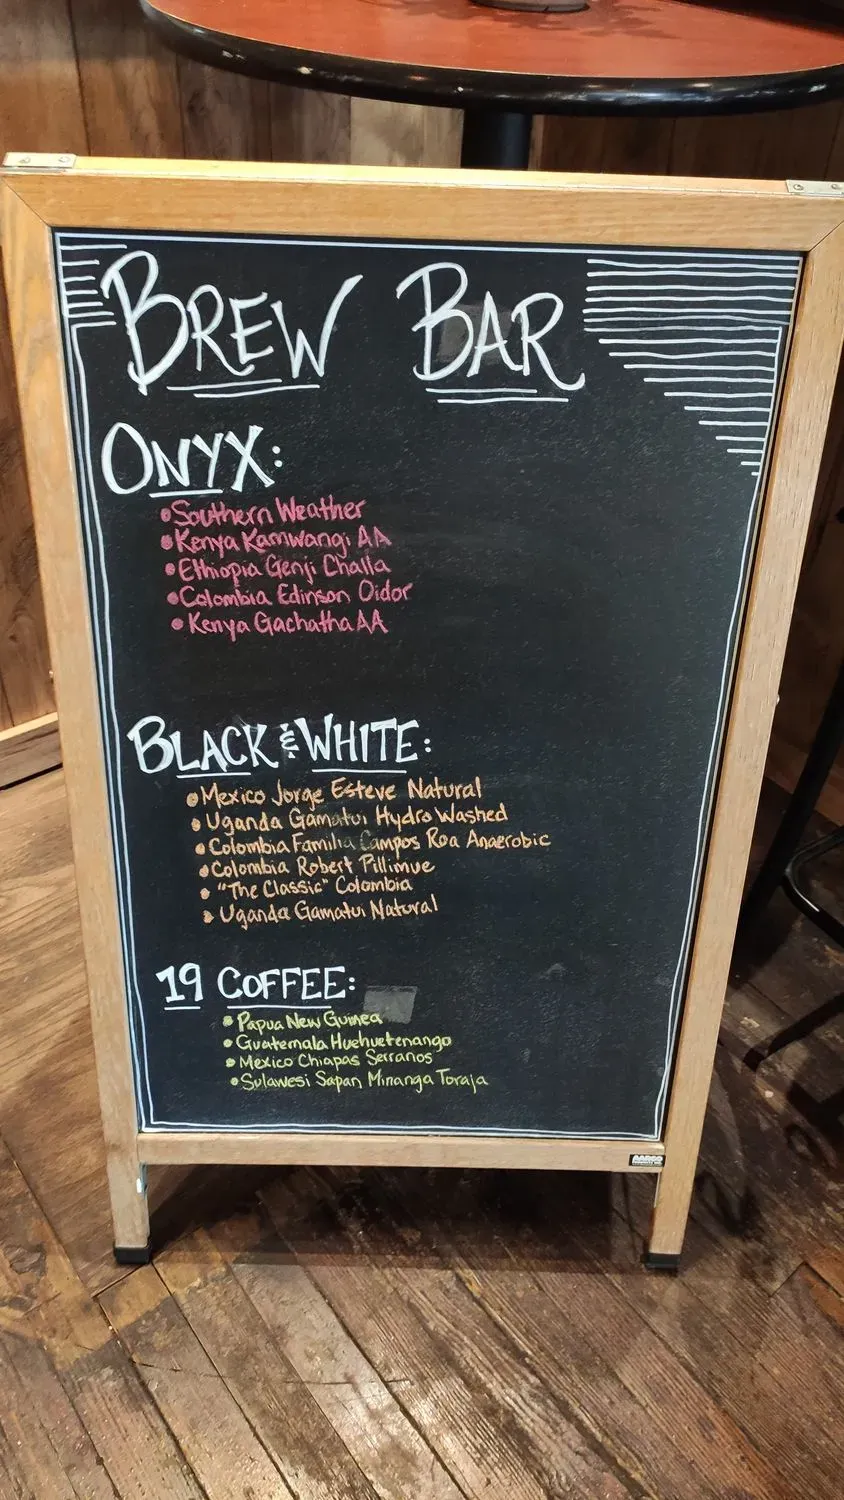 BREW BAR
ONYX:
• Southern Weather
• Kenya Kamwangi AA
• Ethiopia Genji Challa
• Colombia Edinson Oidor
• Kenya Gachatha AA
BLACK & WHITE:
• Mexico Jorge Esteve Natural
• Uganda Gamatui Hydro Washed
• Colombia Familia Campos Roa Anaerobic
• Colombia Robert Pillimue
• "The Classic" Colombia
• Uganda Gamatui Natural
19 COFFEE:
• Papua New Guinea
• Guatemala Huehuetenango
• Mexico Chiapas Serranos
• Sulawesi Sapan Minanga Toraja
AARCO